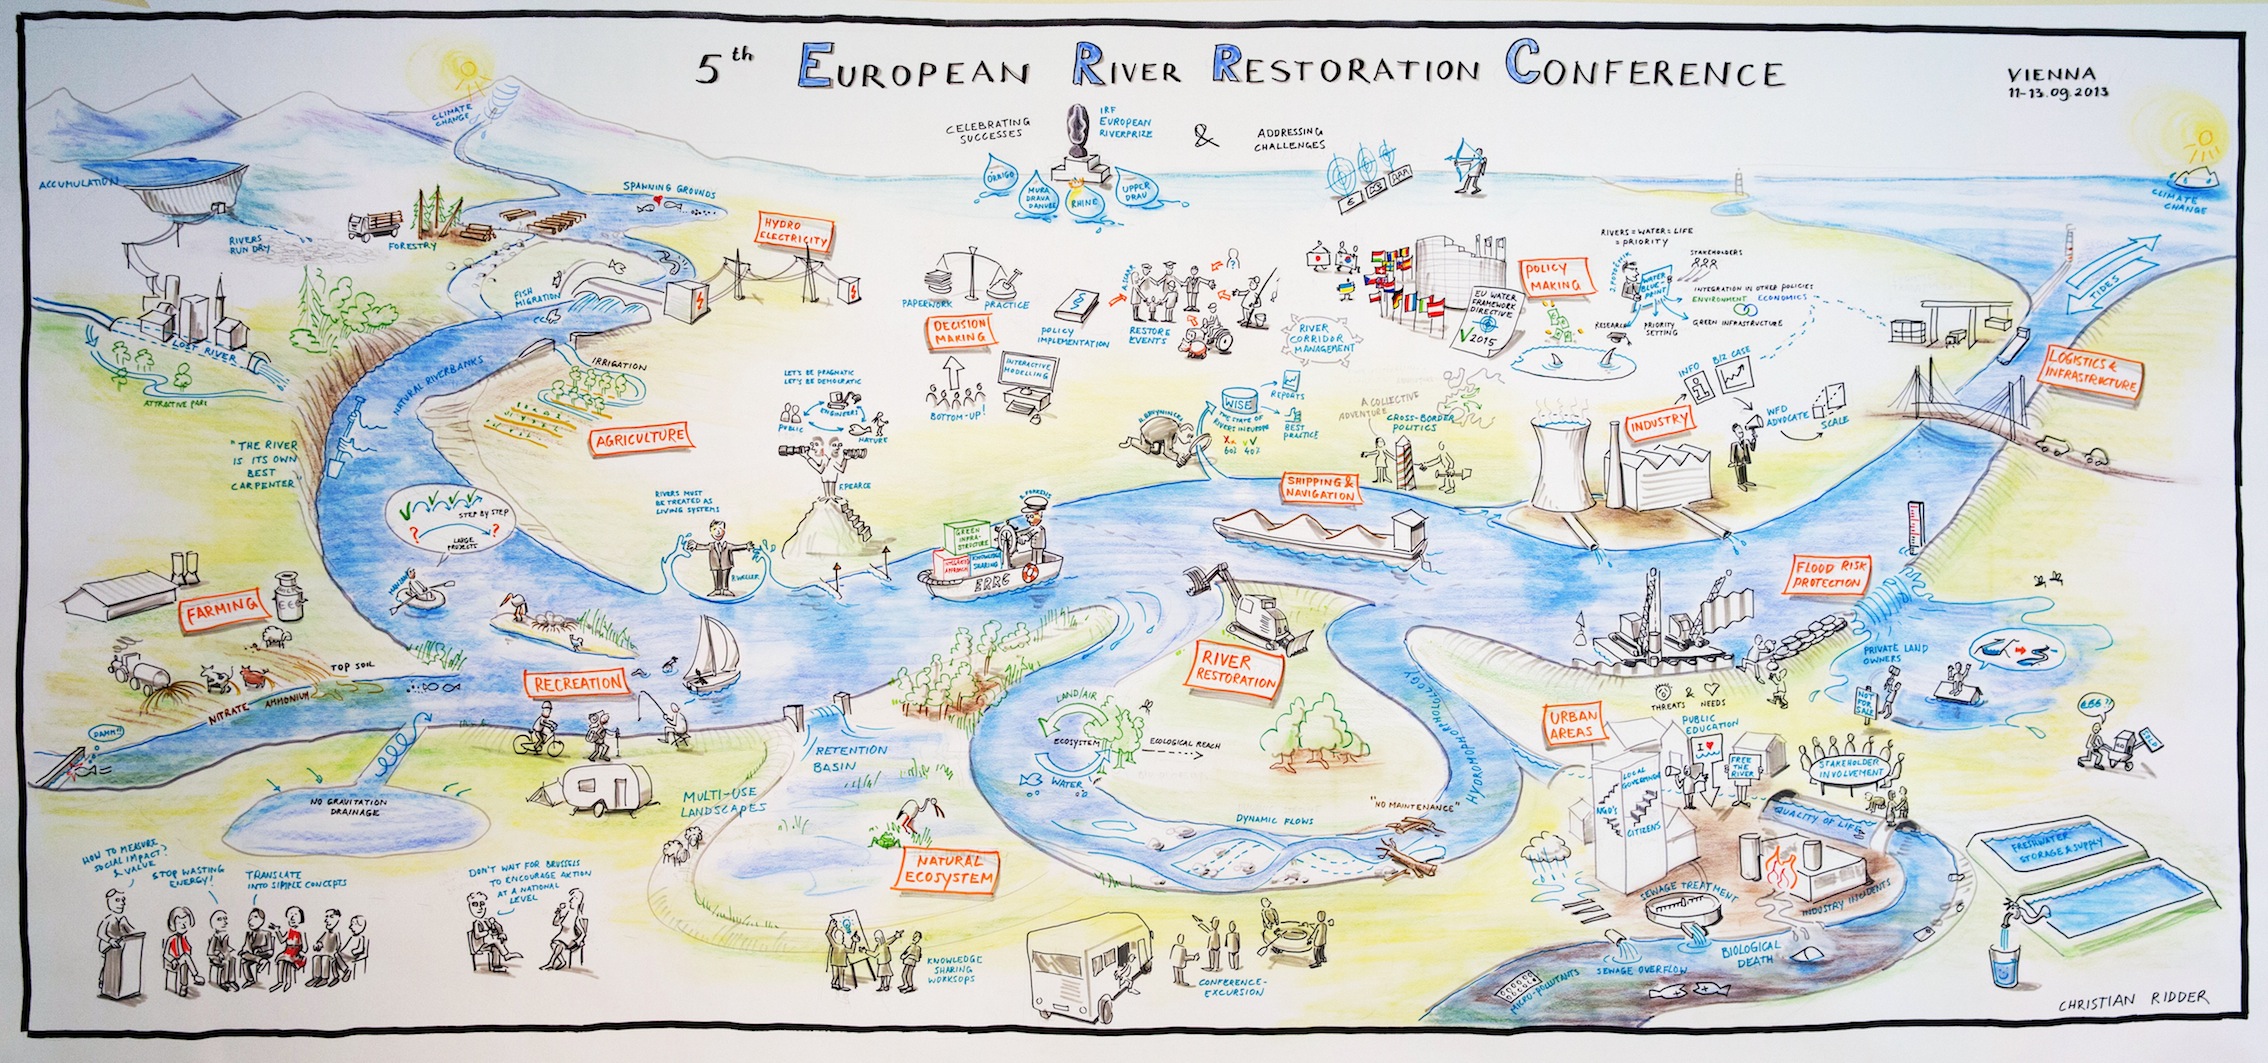 5th EUROPEAN RIVER RESTORATION CONFERENCE
VIENNA
11-13.09.2013
CELEBRATING
SUCCESSES
IRF
EUROPEAN
RIVERPRIZE
&
ADDRESSING
CHALLENGES
ÖRRIGO
MURA
DRAVA
DANUBE
RHINE
UPPER
DRAU
CLIMATE
CHANGE
CLIMATE
CHANGE
ACCUMULATION
RIVERS
RUN DRY
FORESTRY
SPANNING GROUNDS
HYDRO
ELECTRICITY
FISH
MIGRATION
LOST RIVER
ATTRACTIVE PARK
NATURAL RIVERBANKS
IRRIGATION
AGRICULTURE
"THE RIVER
IS ITS OWN
BEST
CARPENTER"
PAPERWORK
PRACTICE
DECISION
MAKING
BOTTOM-UP!
INTERACTIVE
MODELLING
POLICY
IMPLEMENTATION
RESTORE
EVENTS
RIVER
CORRIDOR
MANAGEMENT
EU WATER
FRAMEWORK
DIRECTIVE
2015
POLICY
MAKING
RIVERS = WATER = LIFE
= PRIORITY
STAKEHOLDERS
WATER
BLUE-
PRINT
INTEGRATION IN OTHER POLICIES
ENVIRONMENT ECONOMICS
GREEN INFRASTRUCTURE
RESEARCH
PRIORITY
SETTING
TIDES
LOGISTICS &
INFRASTRUCTURE
LET'S BE PRAGMATIC
LET'S BE DEMOCRATIC
ENGINEERS
PUBLIC
NATURE
F.PEARCE
WISE
THE STATE OF
RIVERS IN EUROPE
60% 40%
REPORTS
BEST
PRACTICE
A COLLECTIVE
ADVENTURE
CROSS-BORDER
POLITICS
INDUSTRY
INFO
BIZ CASE
WFD
ADVOCATE
SCALE
SHIPPING &
NAVIGATION
STEP BY STEP
LARGE
PROJECTS
RIVERS MUST
BE TREATED AS
LIVING SYSTEMS
GREEN
INFRA-
STRUCTURE
KNOWLEDGE
SHARING
ERRC
FLOOD RISK
PROTECTION
PRIVATE LAND
OWNERS
NOT
FOR
SALE
SOLD
FARMING
TOP SOIL
NITRATE AMMONIUM
DAMN!!
NO GRAVITATION
DRAINAGE
RECREATION
MULTI-USE
LANDSCAPES
RETENTION
BASIN
NATURAL
ECOSYSTEM
RIVER
RESTORATION
LAND/AIR
ECOSYSTEM
WATER
ECOLOGICAL REACH
DYNAMIC FLOWS
"NO MAINTENANCE"
HYDROMORPHOLOGY
THREATS & NEEDS
URBAN
AREAS
PUBLIC
EDUCATION
I ♥
FREE
THE
RIVER
STAKEHOLDER
INVOLVEMENT
LOCAL
GOVERNMENT
NGO'S
CITIZENS
QUALITY OF LIFE
SEWAGE TREATMENT
INDUSTRY INCIDENTS
BIOLOGICAL
DEATH
SEWAGE OVERFLOW
MICRO-POLLUTANTS
FRESHWATER
STORAGE & SUPPLY
HOW TO MEASURE
SOCIAL IMPACT?
& VALUE
STOP WASTING
ENERGY!
TRANSLATE
INTO SIMPLE CONCEPTS
DON'T WAIT FOR BRUSSELS
TO ENCOURAGE AKTION
AT A NATIONAL
LEVEL
KNOWLEDGE
SHARING
WORKSOPS
CONFERENCE-
EXCURSION
CHRISTIAN RIDDER